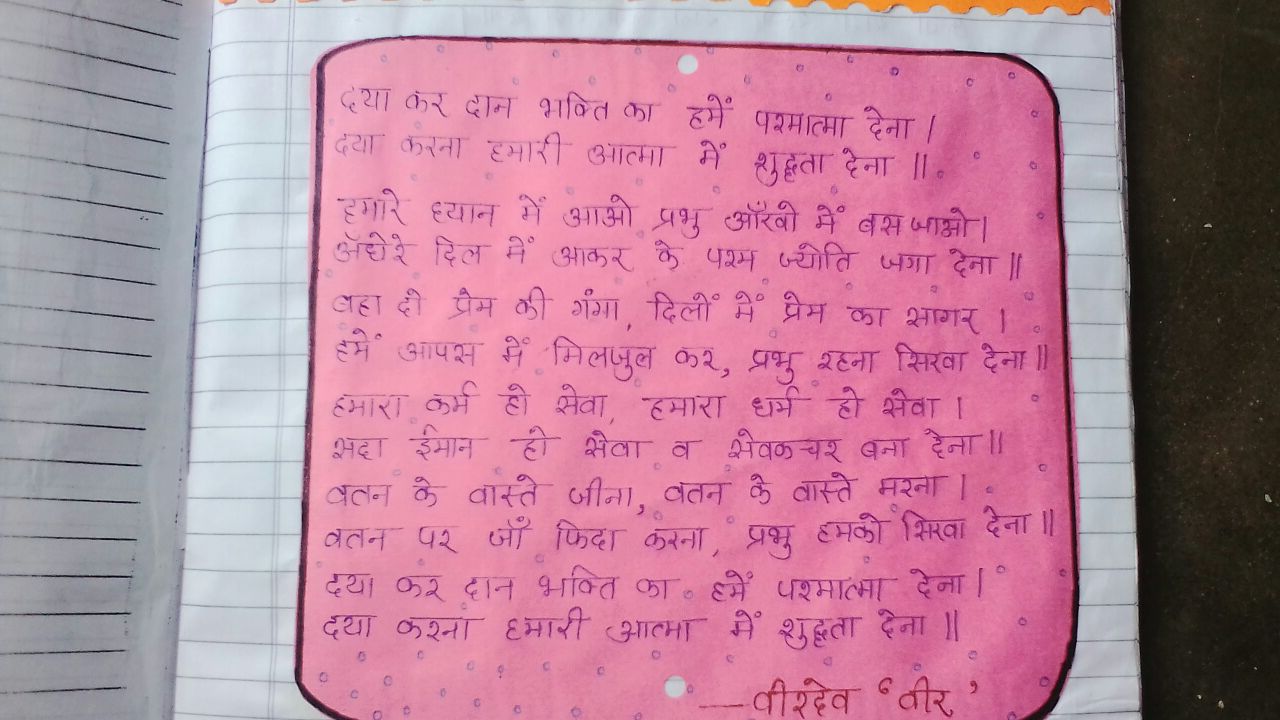 दया कर दान भक्ति का हमें परमात्मा देना ।
दया करना हमारी आत्मा में शुद्धता देना ॥
हमारे ध्यान में आओ प्रभु आँखो में बस जाओ।
अँधेरे दिल में आकर के परम ज्योति जगा देना ॥
बहा दो प्रेम की गंगा, दिलों में प्रेम का सागर ।
हमें आपस में मिलजुल कर, प्रभु रहना सिखा देना ॥
हमारा कर्म हो सेवा, हमारा धर्म हो सेवा ।
सदा ईमान हो सेवा व सेवकचर बना देना ॥
वतन के वास्ते जीना, वतन के वास्ते मरना ।
वतन पर जाँ फिदा करना, प्रभु हमको सिखा देना ॥
दया कर दान भक्ति का हमें परमात्मा देना ।
दया करना हमारी आत्मा में शुद्धता देना ॥
—वीरदेव ‘वीर’